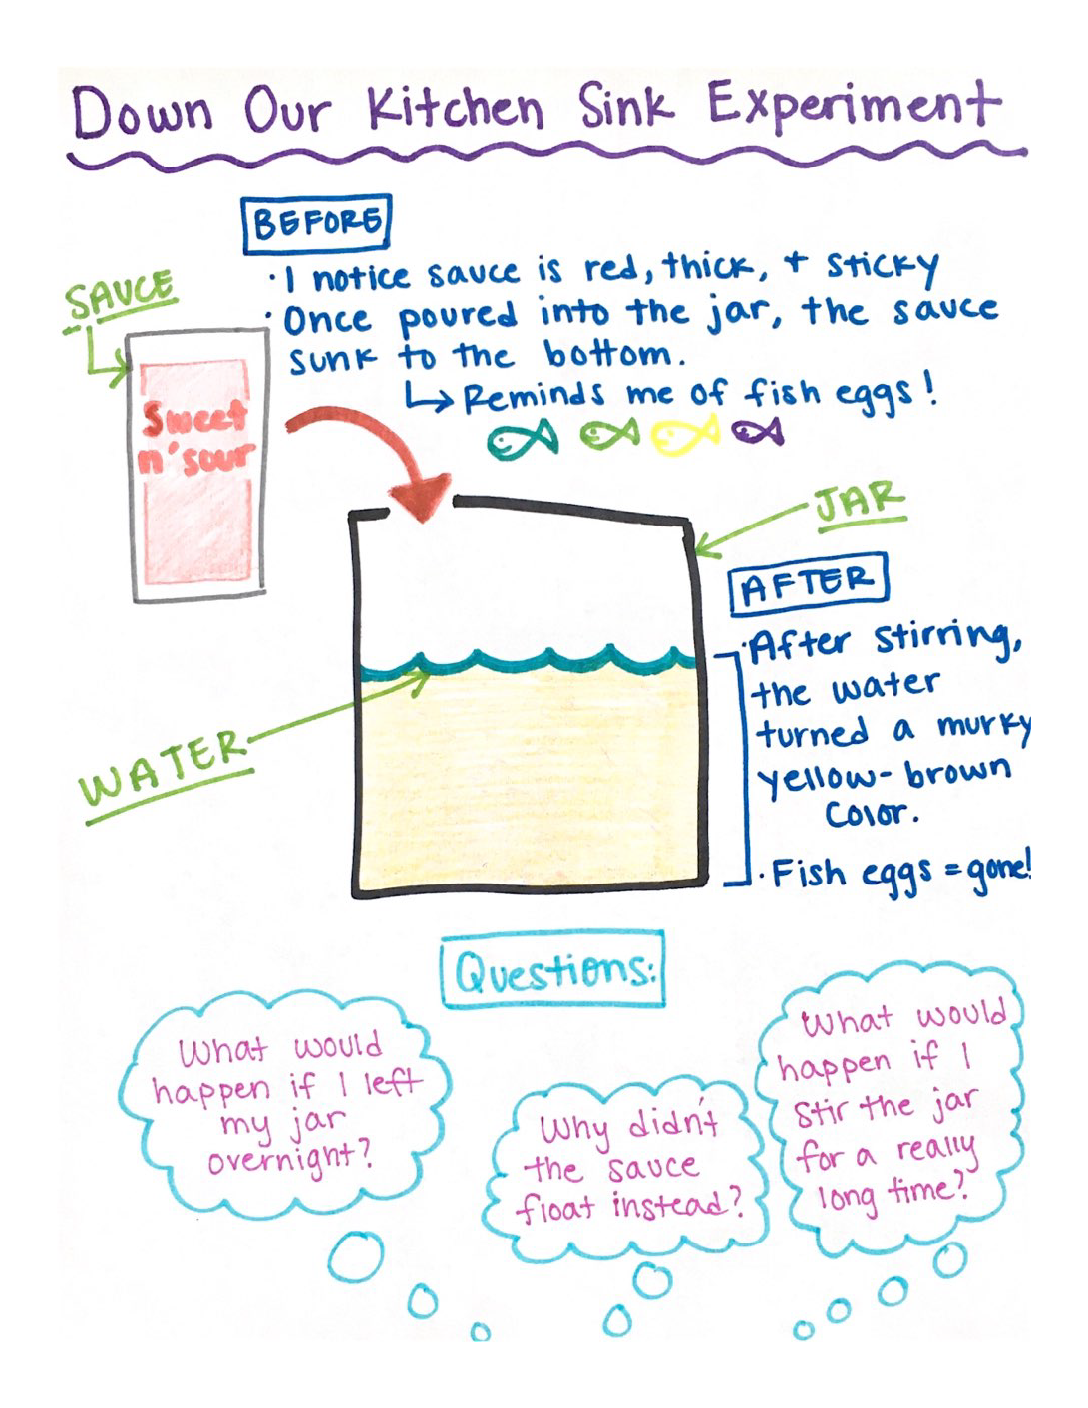 Down Our Kitchen Sink Experiment
BEFORE
· I notice sauce is red, thick, + sticky
· Once poured into the jar, the sauce
sunk to the bottom.
↳ Reminds me of fish eggs!
SAUCE
Sweet
n' sour
JAR
AFTER
· After stirring,
the water
turned a murky
yellow-brown
color.
· Fish eggs = gone!
WATER
Questions:
What would
happen if I left
my jar
overnight?
Why didn't
the sauce
float instead?
What would
happen if I
stir the jar
for a really
long time?